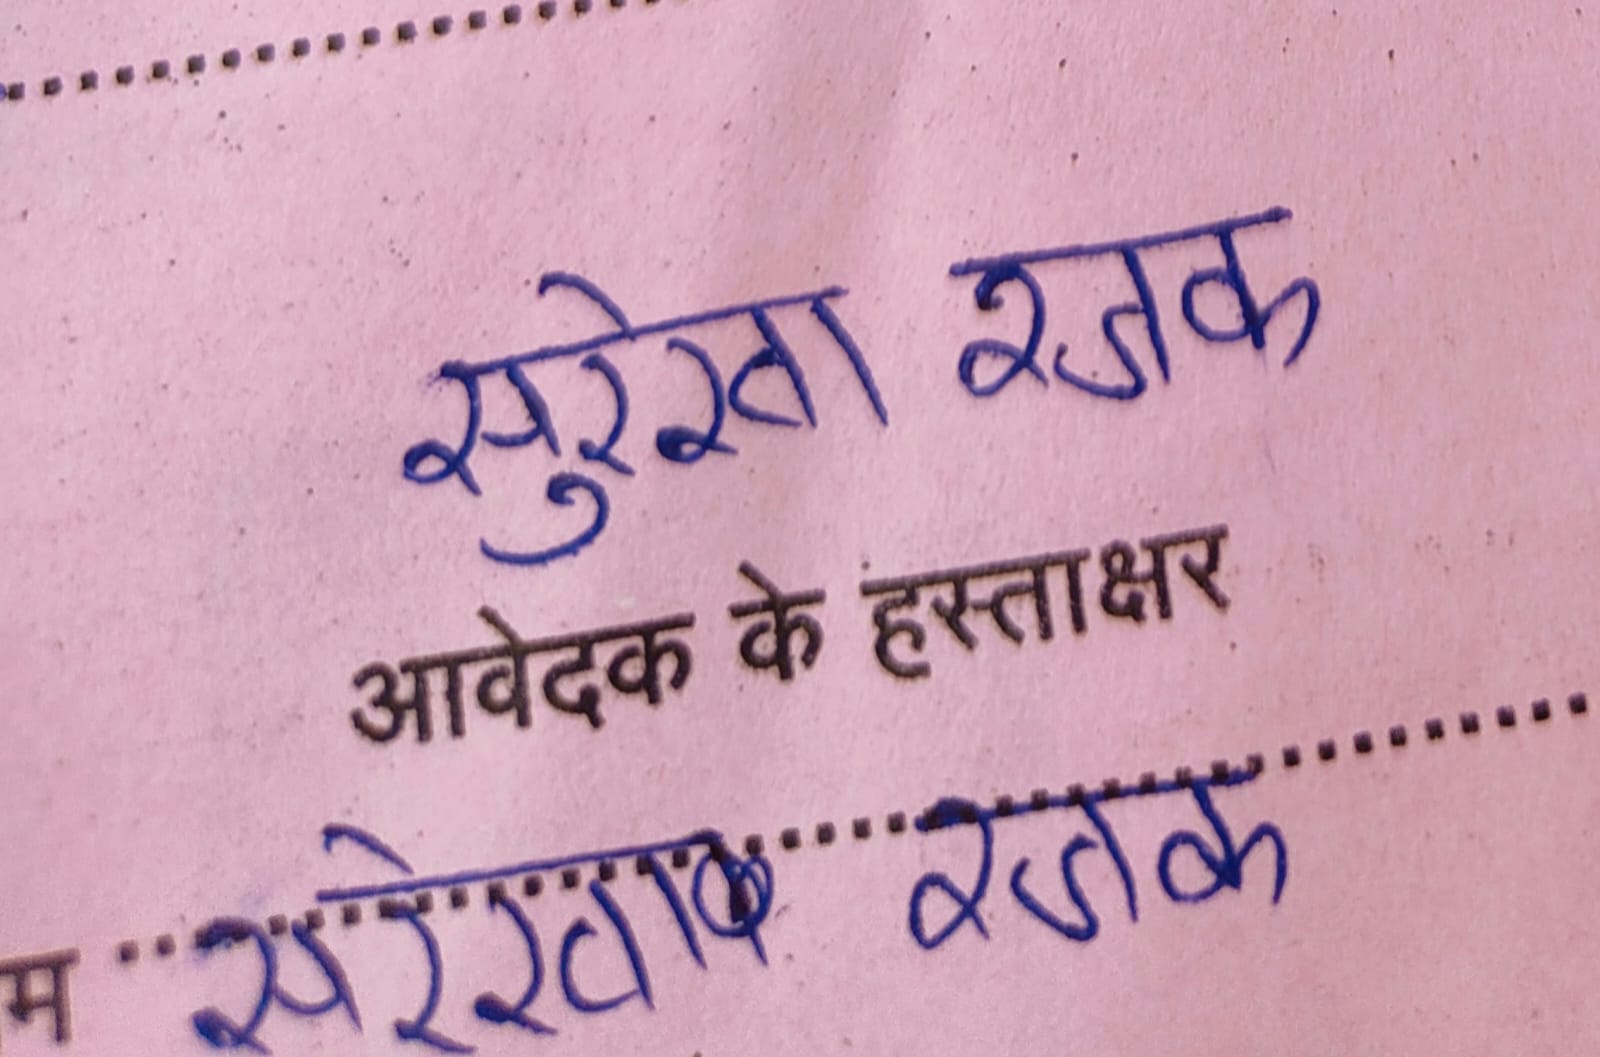 सुरेखा रजक
आवेदक के हस्ताक्षर
म सरेखा रजक